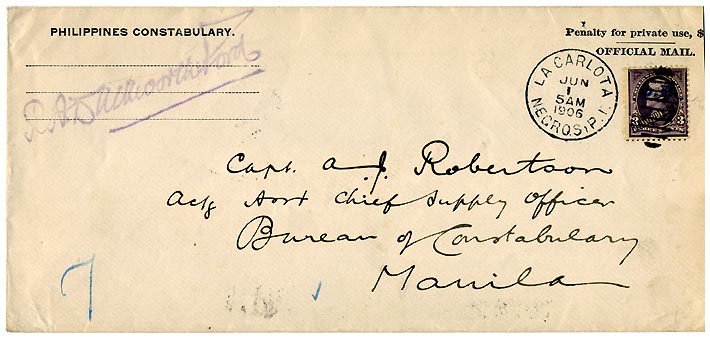 PHILIPPINES CONSTABULARY.
Penalty for private use, $
OFFICIAL MAIL.
LA CARLOTA
JUN
1
5 AM
1906
NEGROS, P.I.
3 3
Capt. A. J. Robertson
Actg Asst Chief Supply Officer
Bureau of Constabulary
Manila